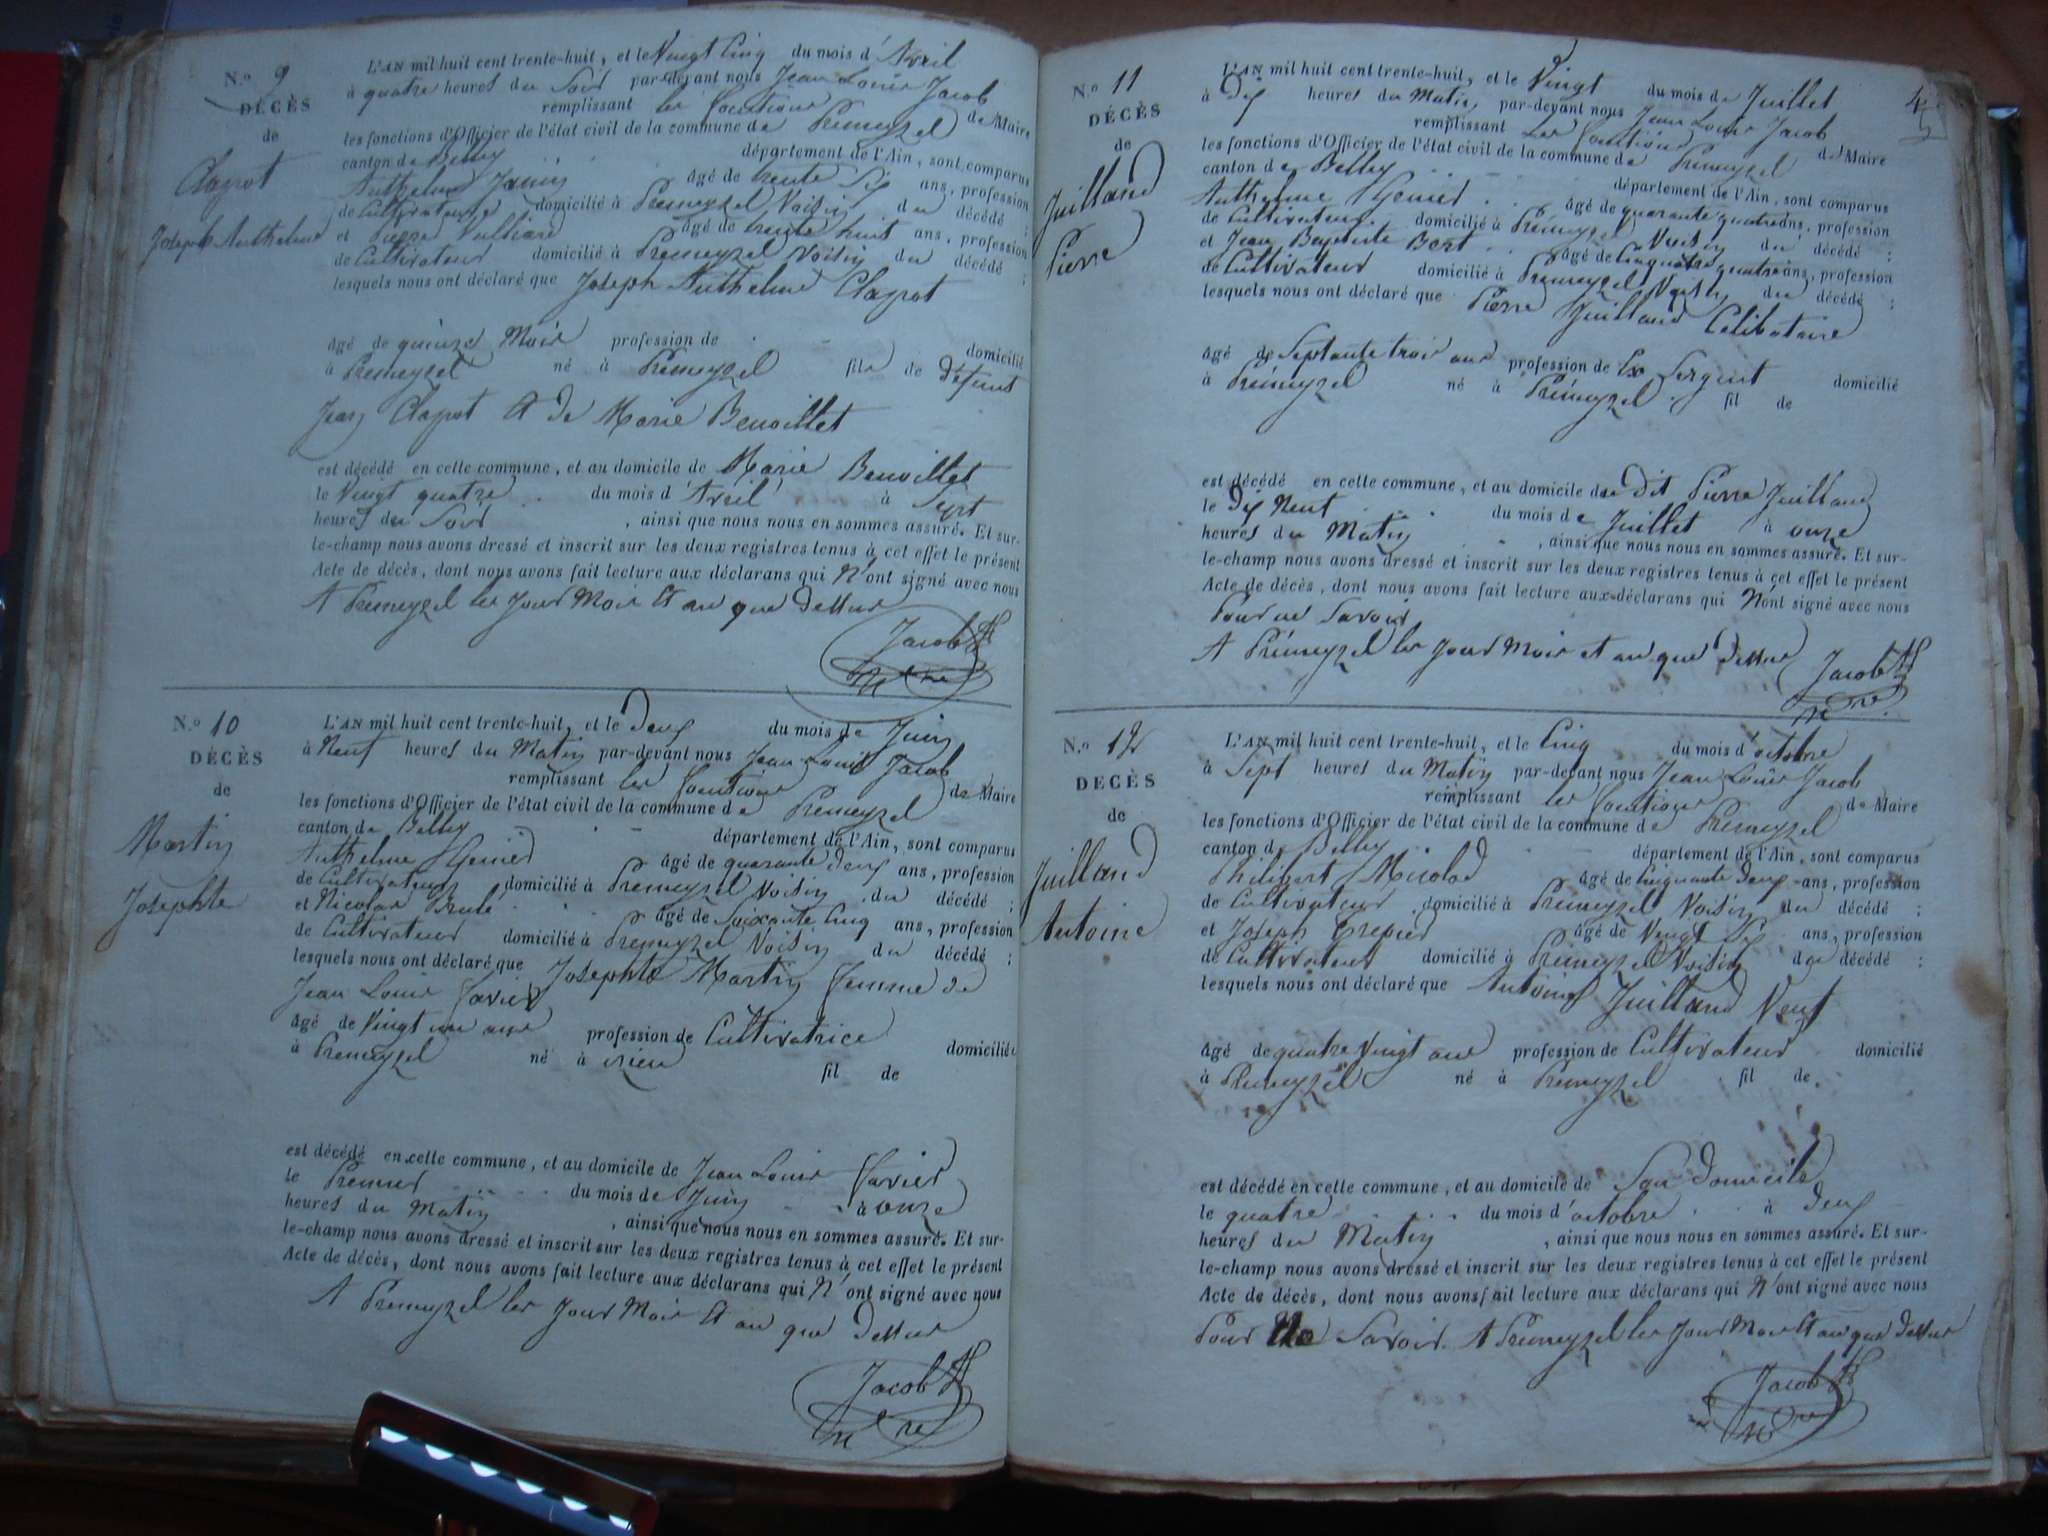 N.o 9
DÉCÈS
de
Clapot
Joseph Anthelme
L'AN mil huit cent trente-huit, et le Vingt Cinq du mois d'Avril
à quatre heures du Soir par-devant nous Jean Louis Jacob
remplissant les fonctions de Maire
les fonctions d'Officier de l'état civil de la commune de Premeyzel
canton de Belley département de l'Ain, sont comparus
Anthelme âgé de trente Six ans, profession
de Cultivateur domicilié à Premeyzel Voisin du décédé ;
et Pierre Vulliard âgé de trente huit ans, profession
de Cultivateur domicilié à Premeyzel Voisin du décédé ;
lesquels nous ont déclaré que Joseph Anthelme Clapot
âgé de quinze Mois profession de domicilié
à Premeyzel né à Premeyzel fils de défunt
Jean Clapot et de Marie Benoillet
est décédé en cette commune, et au domicile de Marie Benoillet
le Vingt quatre du mois d'Avril à Sept
heures du Soir, ainsi que nous nous en sommes assuré. Et sur-
le-champ nous avons dressé et inscrit sur les deux registres tenus à cet effet le présent
Acte de décès, dont nous avons fait lecture aux déclarans qui N'ont signé avec nous
A Premeyzel les Jour Mois et an que dessus
Jacob
N.o 10
DÉCÈS
de
Martin
Josephte
L'AN mil huit cent trente-huit, et le deux du mois de Juin
à Neuf heures du Matin par-devant nous Jean Louis Jacob
remplissant les fonctions de Maire
les fonctions d'Officier de l'état civil de la commune de Premeyzel
canton de Belley département de l'Ain, sont comparus
Anthelme Genier âgé de quarante deux ans, profession
de Cultivateur domicilié à Premeyzel Voisin du décédé ;
et Nicolas Brulé âgé de Soixante Cinq ans, profession
de Cultivateur domicilié à Premeyzel Voisin du décédé ;
lesquels nous ont déclaré que Josephte Martin femme de
Jean Louis Favier
âgé de Vingt un ans profession de Cultivatrice domicilié
à Premeyzel né à fil de
est décédé en cette commune, et au domicile de Jean Louis Favier
le Premier du mois de Juin à onze
heures du Matin, ainsi que nous nous en sommes assuré. Et sur-
le-champ nous avons dressé et inscrit sur les deux registres tenus à cet effet le présent
Acte de décès, dont nous avons fait lecture aux déclarans qui N'ont signé avec nous
A Premeyzel les Jour Mois et an que dessus
Jacob
N.o 11
DÉCÈS
de
Juilland
Pierre
L'AN mil huit cent trente-huit, et le Vingt du mois de Juillet
à Dix heures du Matin par-devant nous Jean Louis Jacob
remplissant les fonctions de Maire
les fonctions d'Officier de l'état civil de la commune de Prémeyzel
canton de Belley département de l'Ain, sont comparus
Anthelme Genier âgé de quarante quatre ans, profession
de Cultivateur domicilié à Prémeyzel Voisin du décédé ;
et Jean Baptiste Bort âgé de Cinquante quatre ans, profession
de Cultivateur domicilié à Premeyzel Voisin du décédé ;
lesquels nous ont déclaré que Pierre Juilland Célibataire
âgé de Septante trois ans profession de Ex Sergent domicilié
à Prémeyzel né à Prémeyzel fil de
est décédé en cette commune, et au domicile du dit Pierre Juilland
le Dix Neuf du mois de Juillet à onze
heures du Matin, ainsi que nous nous en sommes assuré. Et sur-
le-champ nous avons dressé et inscrit sur les deux registres tenus à cet effet le présent
Acte de décès, dont nous avons fait lecture aux déclarans qui N'ont signé avec nous
Pour ne Savoir
A Prémeyzel les Jour Mois et an que dessus
Jacob
N.o 12
DECÈS
de
Juilland
Antoine
L'AN mil huit cent trente-huit, et le Cinq du mois d'octobre
à Sept heures du Matin par-devant nous Jean Louis Jacob
remplissant les fonctions de Maire
les fonctions d'Officier de l'état civil de la commune de Premeyzel
canton de Belley département de l'Ain, sont comparus
Philibert Micolod âgé de Cinquante deux ans, profession
de Cultivateur domicilié à Premeyzel Voisin du décédé ;
et Joseph Trepier âgé de Vingt Six ans, profession
de Cultivateur domicilié à Prémeyzel Voisin du décédé ;
lesquels nous ont déclaré que Antoine Juilland Veuf
âgé de quatre Vingt ans profession de Cultivateur domicilié
à Premeyzel né à Premeyzel fil de
est décédé en cette commune, et au domicile de Son Domicile
le quatre du mois d'octobre à deux
heures du Matin, ainsi que nous nous en sommes assuré. Et sur-
le-champ nous avons dressé et inscrit sur les deux registres tenus à cet effet le présent
Acte de décès, dont nous avons fait lecture aux déclarans qui N'ont signé avec nous
Pour ne Savoir A Premeyzel les Jour Mois et an que dessus
Jacob